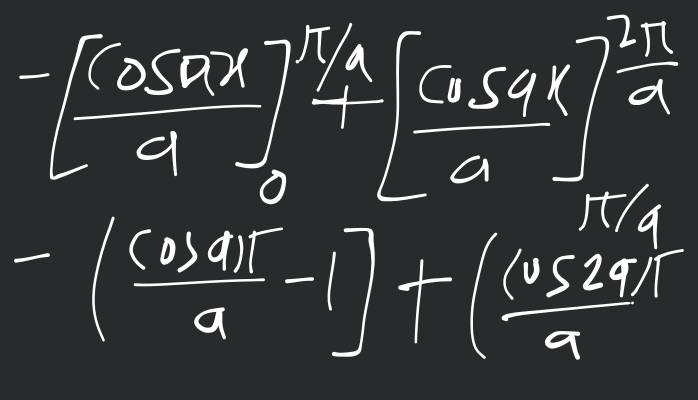 -[cosax/a]_0^{π/a} + [cosax/a]_{π/a}^{2π/a}
-(cosaπ/a - 1] + (cos2aπ/a